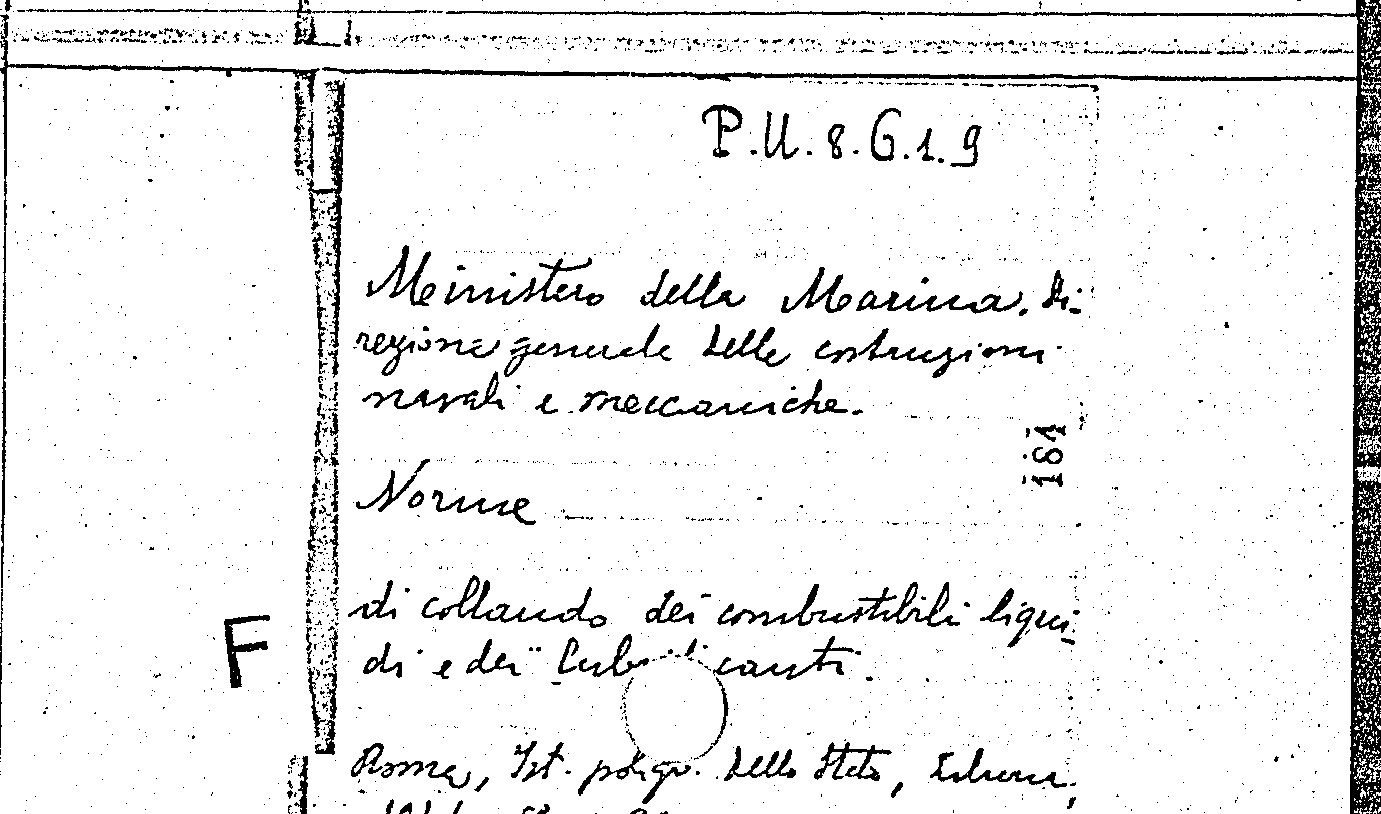 P.U.8.G.1.9
Ministero della Marina. Di-
rezione generale delle costruzioni
navali e meccaniche.
161
Norme
di collaudo dei combustibili liqui-
di e dei
F
Roma, Ist. poligr. dello Stato, Libreria,